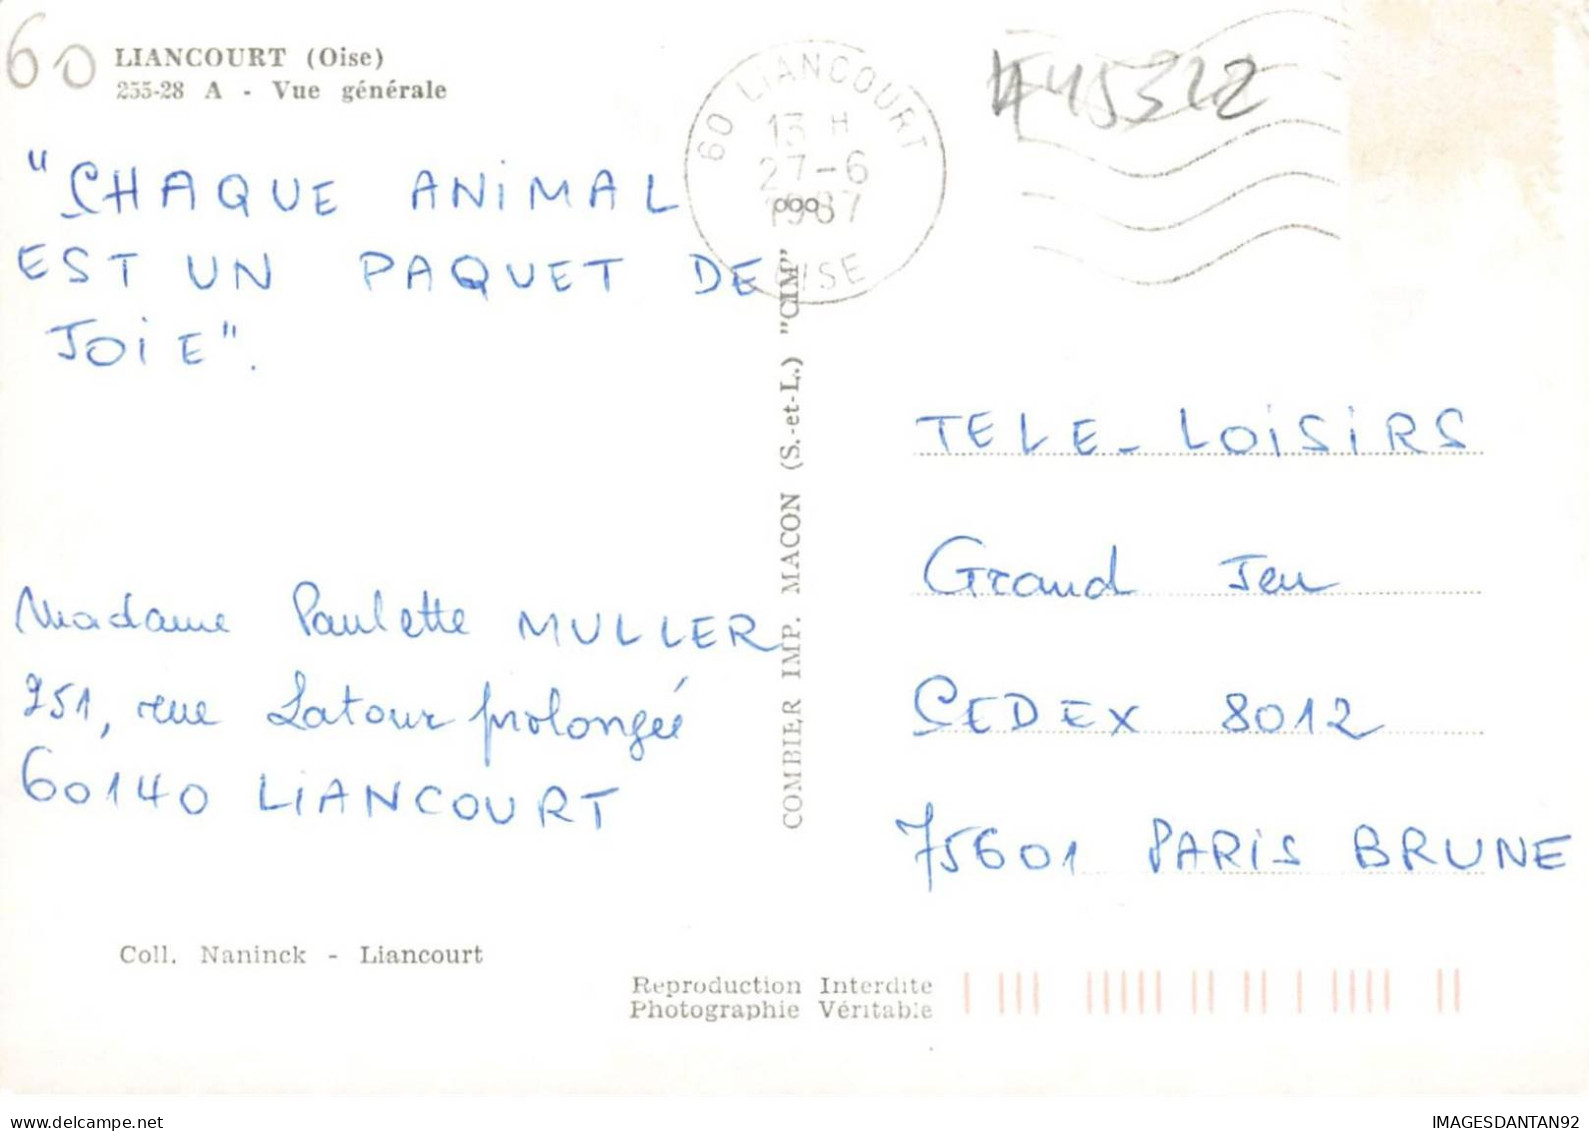 60
LIANCOURT (Oise)
255-28 A - Vue générale
60 LIANCOURT
13 H
27-6
1987
OISE
"CHAQUE ANIMAL
EST UN PAQUET DE
JOIE".
Madame Paulette MULLER
251, rue Latour prolongée
60140 LIANCOURT
COMBIER IMP. MACON (S.-et-L.) "CIM"
TELE-LOISIRS
Grand Jeu
CEDEX 8012
75601 PARIS BRUNE
Coll. Naninck - Liancourt
Reproduction Interdite
Photographie Véritable
delcampe.net
IMAGESDANTAN92